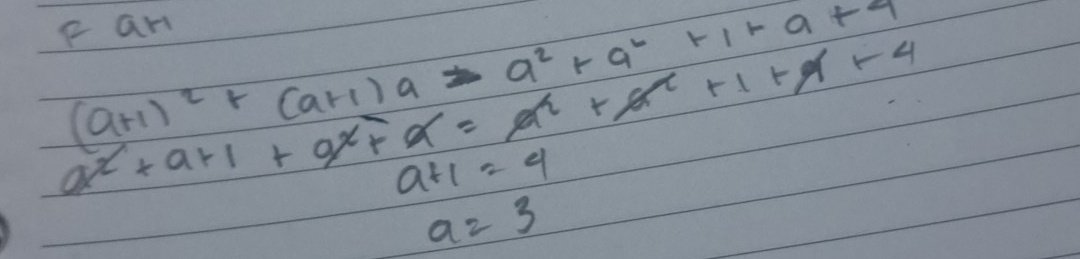 F a+1
(a+1)² + (a+1)a = a² + a² + 1 + a + 4
a² + a+1 + a² + a = a² + a² + 1 + a + 4
a+1 = 4
a = 3